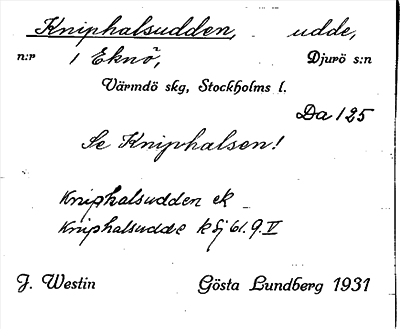 Kniphalsudden, udde,
n:r 1 Eknö, Djurö s:n
Värmdö skg, Stockholms l.
Da 125
Se Kniphalsen!
Kniphalsudden ek
Kniphalsudde k sj 61.9.V
J. Westin Gösta Lundberg 1931